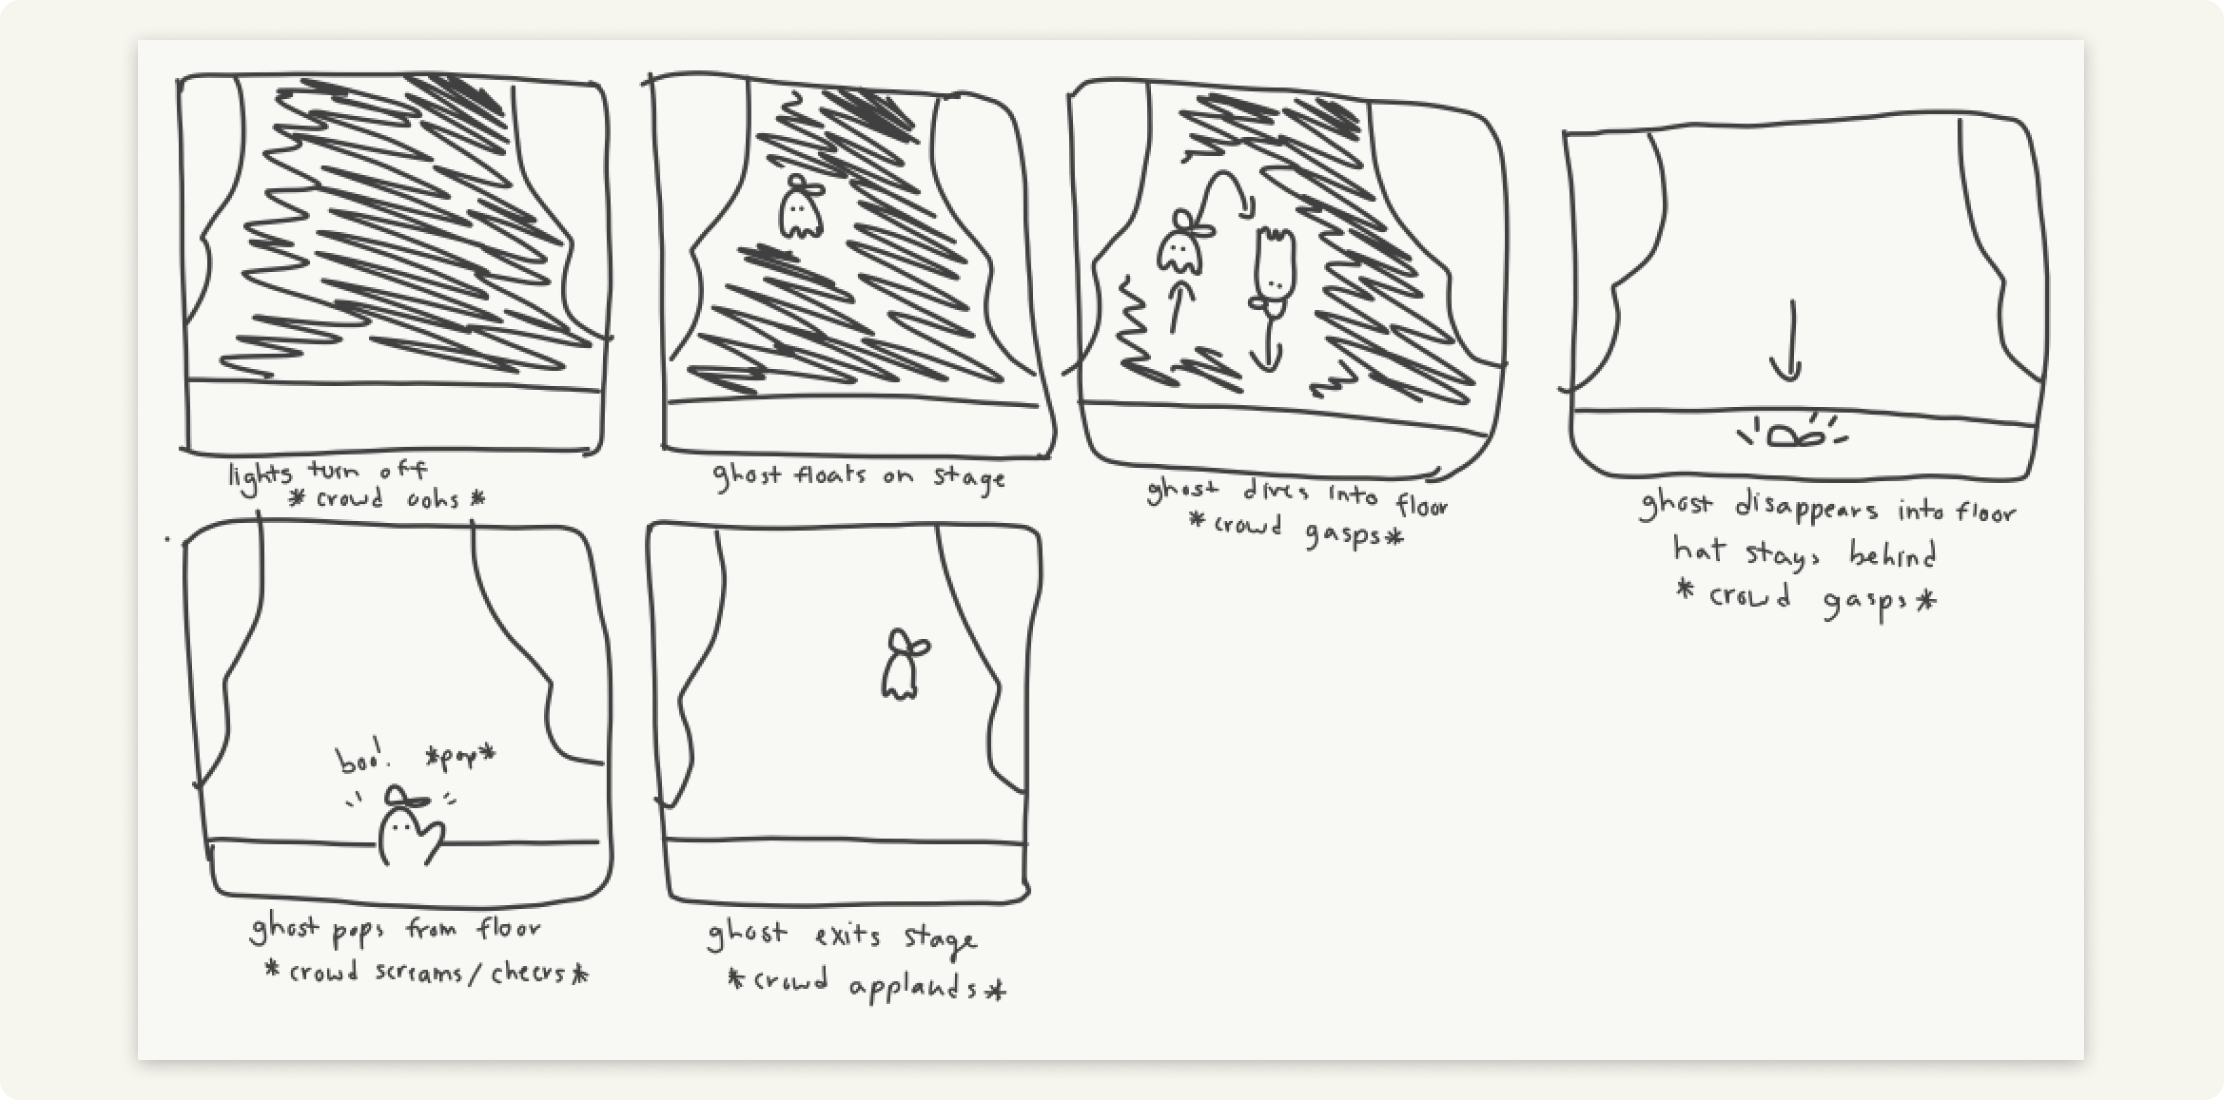 lights turn off
* crowd oohs *
ghost floats on stage
ghost dives into floor
* crowd gasps *
ghost disappears into floor
hat stays behind
* crowd gasps *
boo! *pop*
ghost pops from floor
* crowd screams / cheers *
ghost exits stage
* crowd applauds *